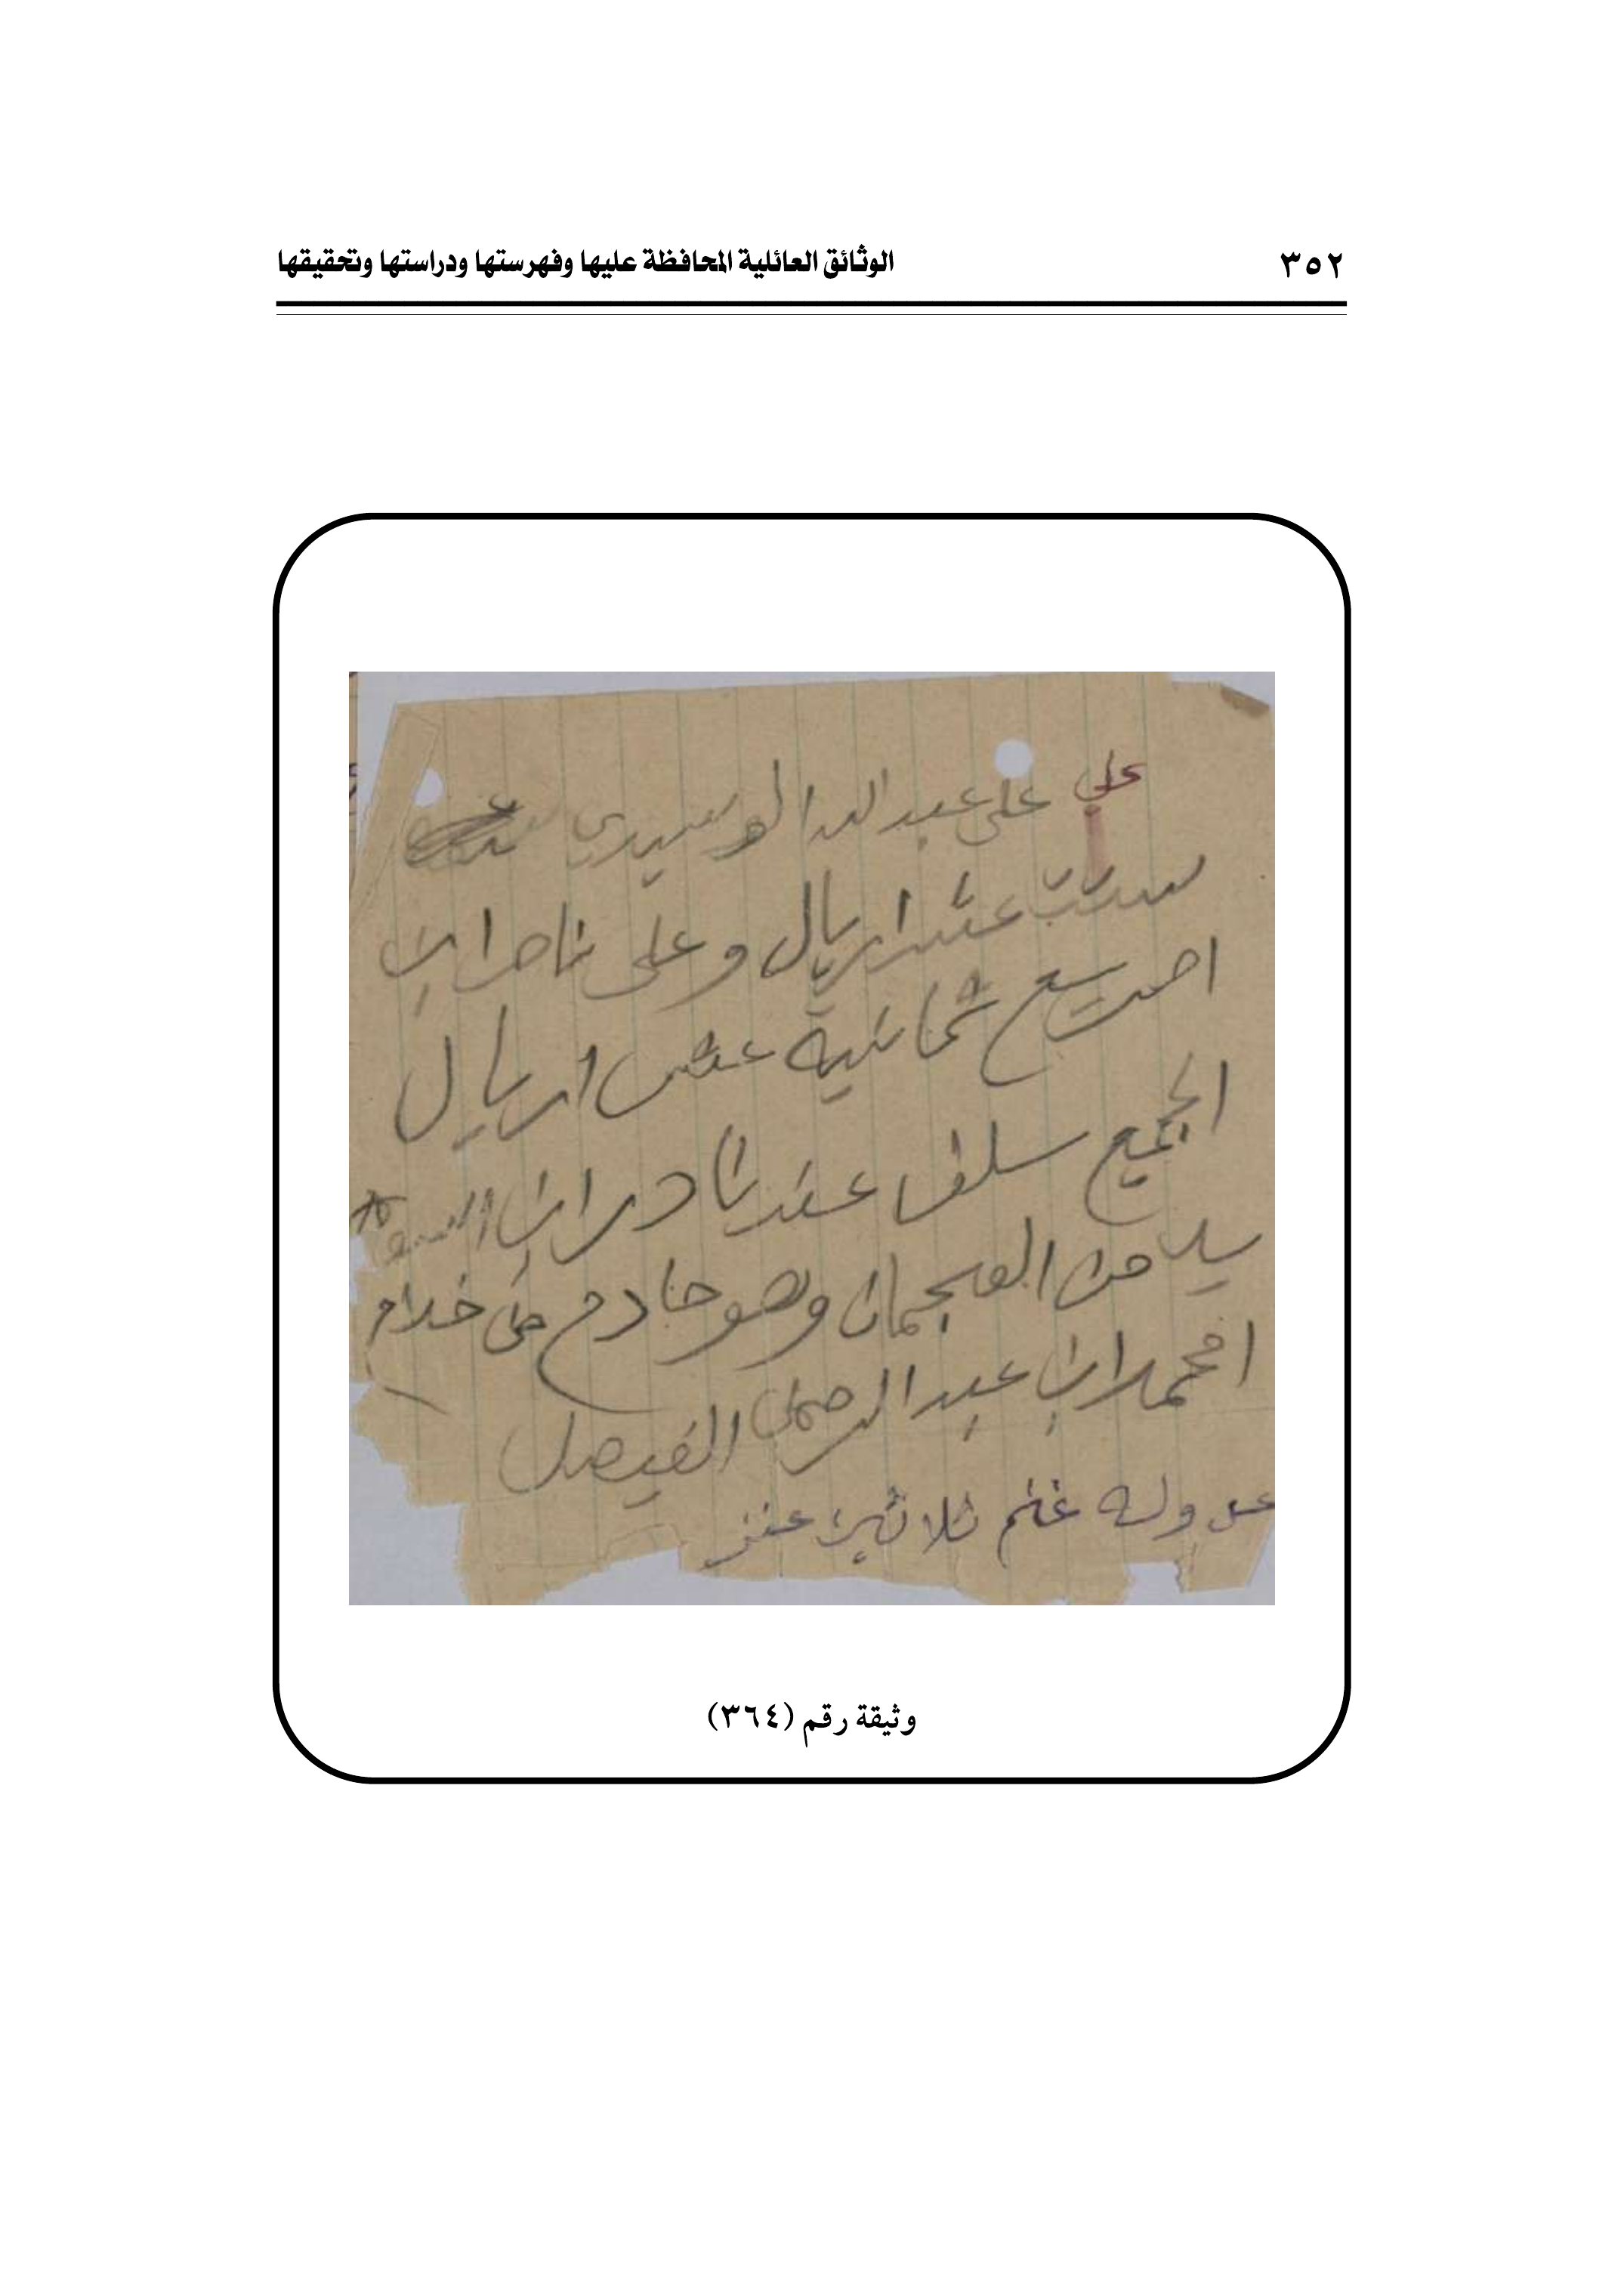 ٣٥٢ الوثائق العائلية المحافظة عليها وفهرستها ودراستها وتحقيقها
على على عبد الله الوسيدي
ستت عشر اريال وعلى ناصر ابن
ثمانية عشر اريال
الجميع سلف عند نادر ابن
من العجمان وهو خادم من خدام
امحمد ابن عبد الرحمن الفيصل
وله غنم ثلاثين عنز
وثيقة رقم (٣٦٤)